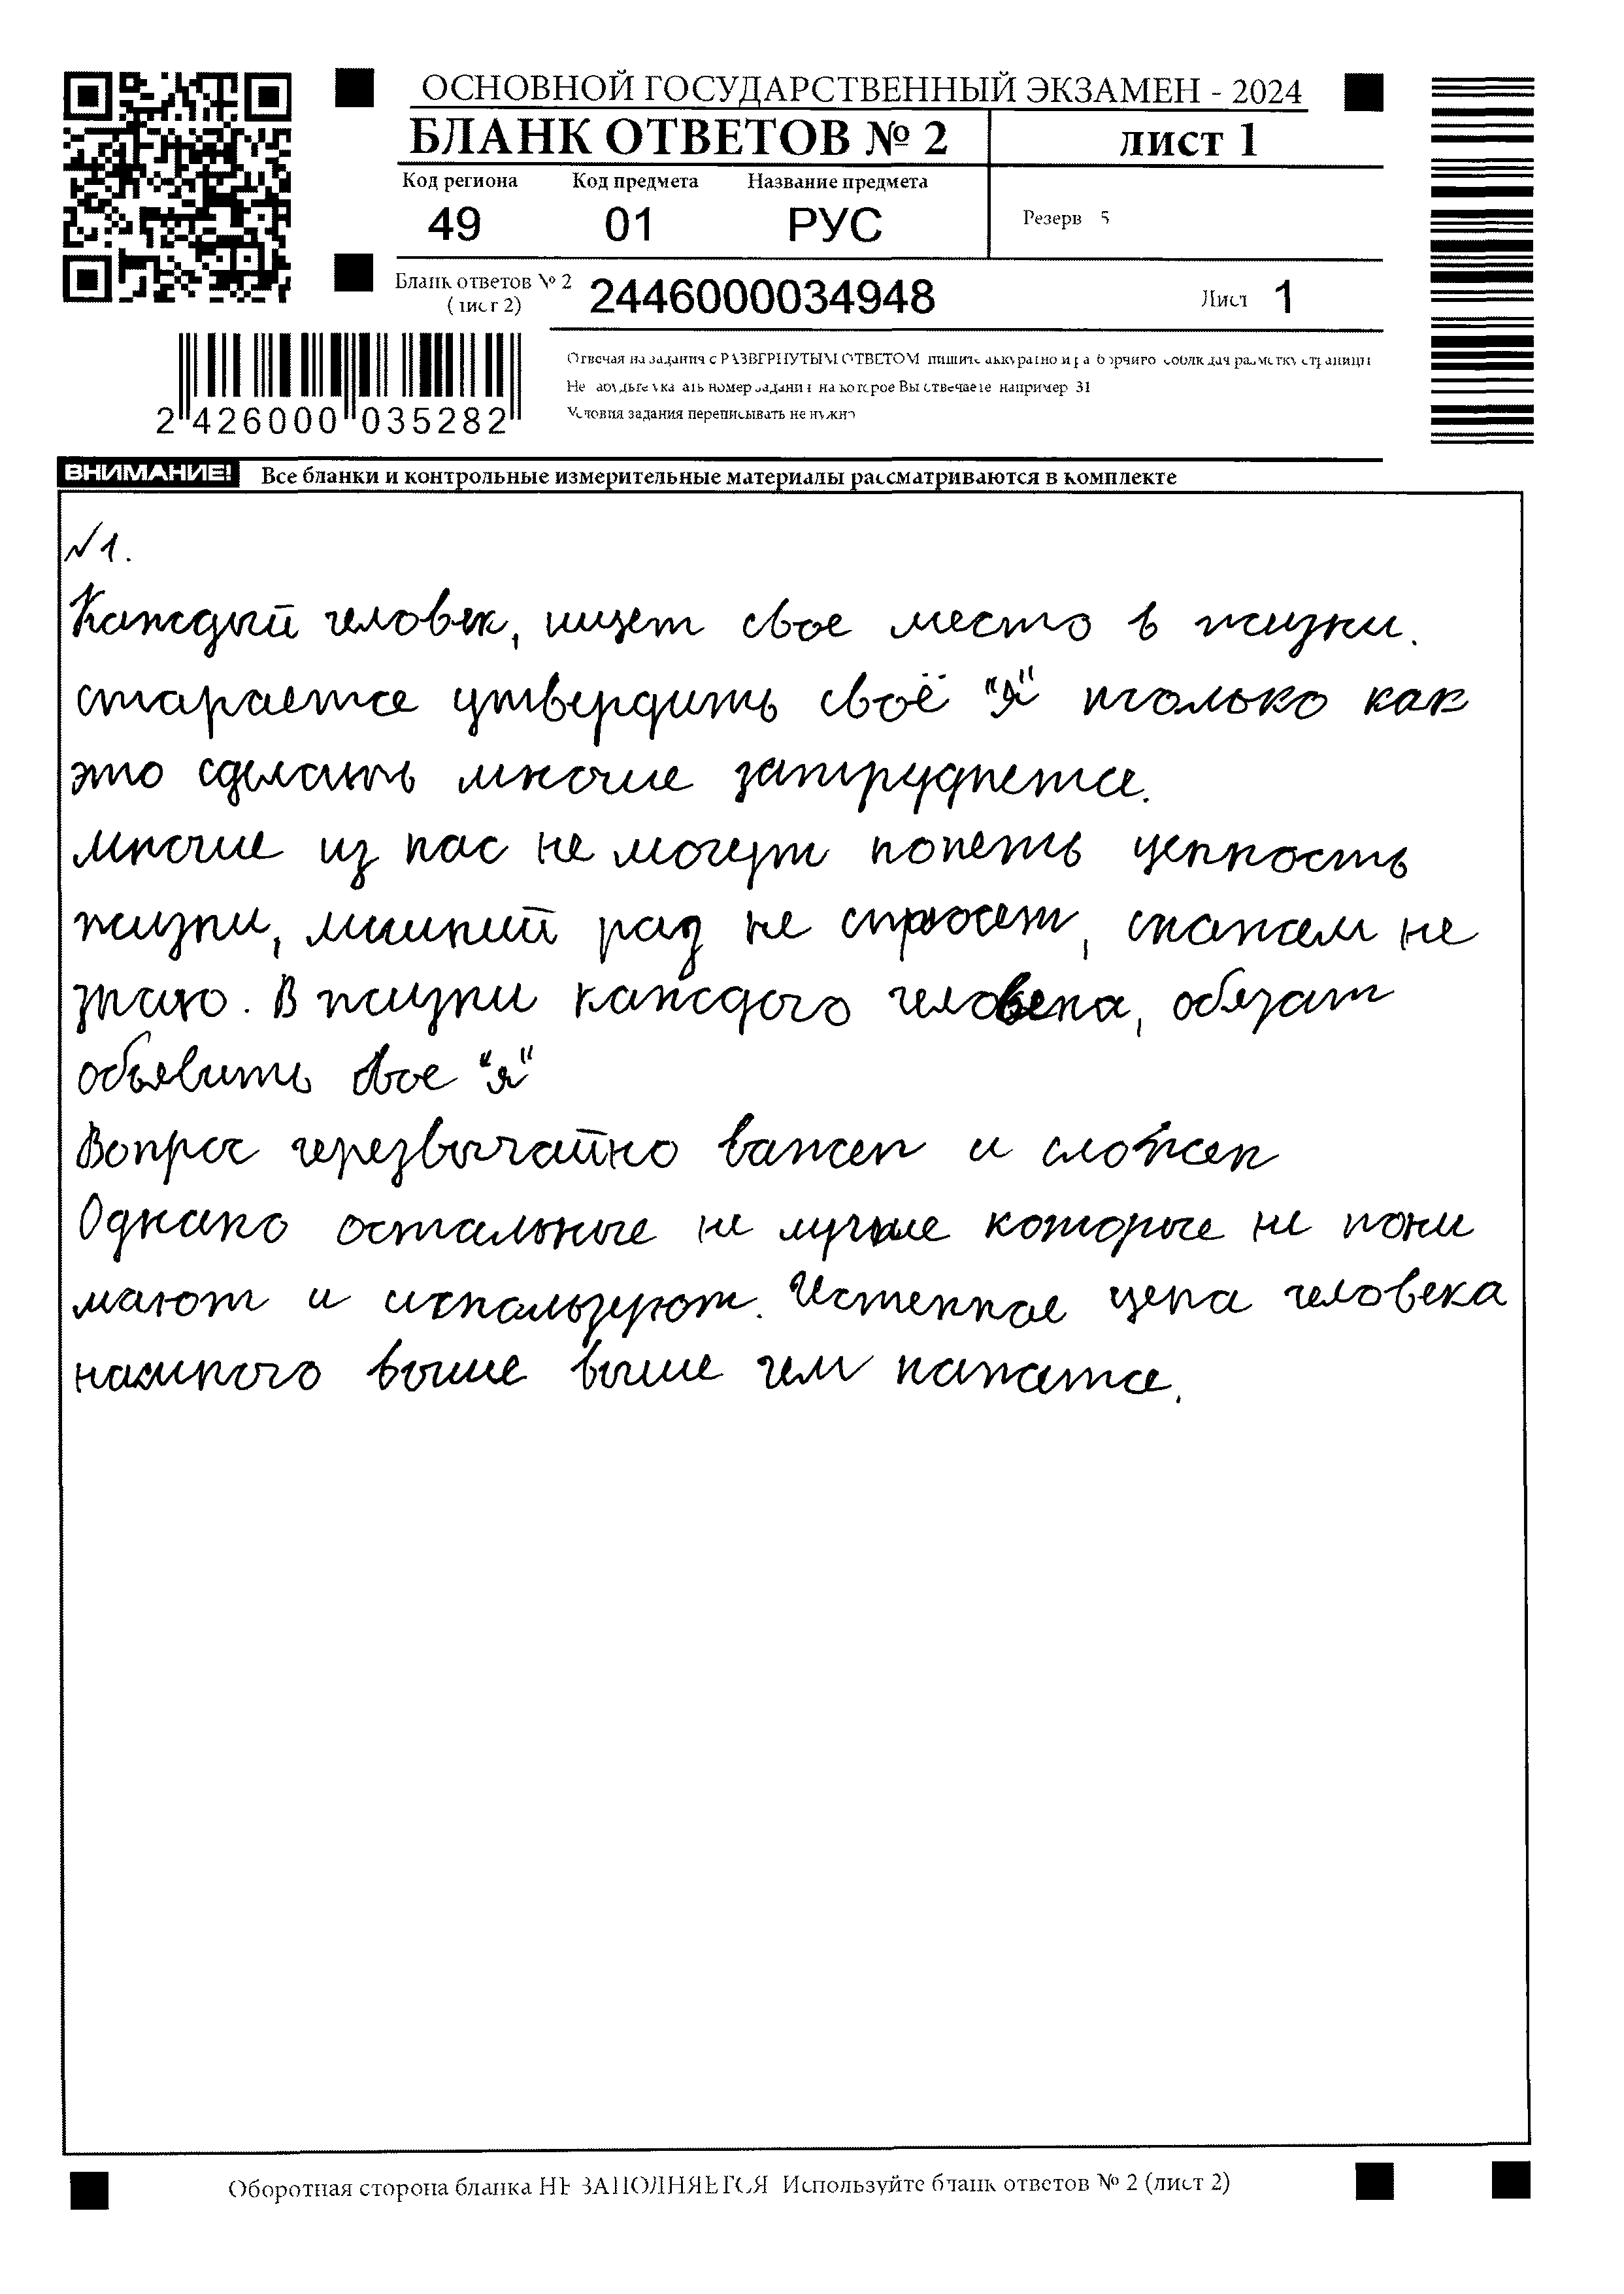 ОСНОВНОЙ ГОСУДАРСТВЕННЫЙ ЭКЗАМЕН - 2024
БЛАНК ОТВЕТОВ № 2
лист 1
Код региона Код предмета Название предмета
49 01 РУС
Резерв 5
Бланк ответов № 2
(лист 2)
2446000034948
Лист 1
2 426000 035282
Отвечая на задания с РАЗВЕРНУТЫМ ОТВЕТОМ пишите аккуратно и разборчиво соблюдая разметку страницы
Не забудьте указать номер задания на которое Вы отвечаете например 31
Условия задания переписывать не нужно
ВНИМАНИЕ! Все бланки и контрольные измерительные материалы рассматриваются в комплекте
№1.
Каждый человек, ищет свое место в жизни.
старается утвердить своё "я" только как
это сделать многие
многие из нас не могут ценность
жизни, лишний раз не, не
знаю. В жизни каждого человека, обязат
объявить свое "я"
Вопрос черезвычайно важен и сложен
Однако остальные не лучше которые не пони
мают и используют. Истенное цена человека
намного выше выше чем кажатся.
Оборотная сторона бланка НЕ ЗАПОЛНЯЕТСЯ Используйте бланк ответов № 2 (лист 2)